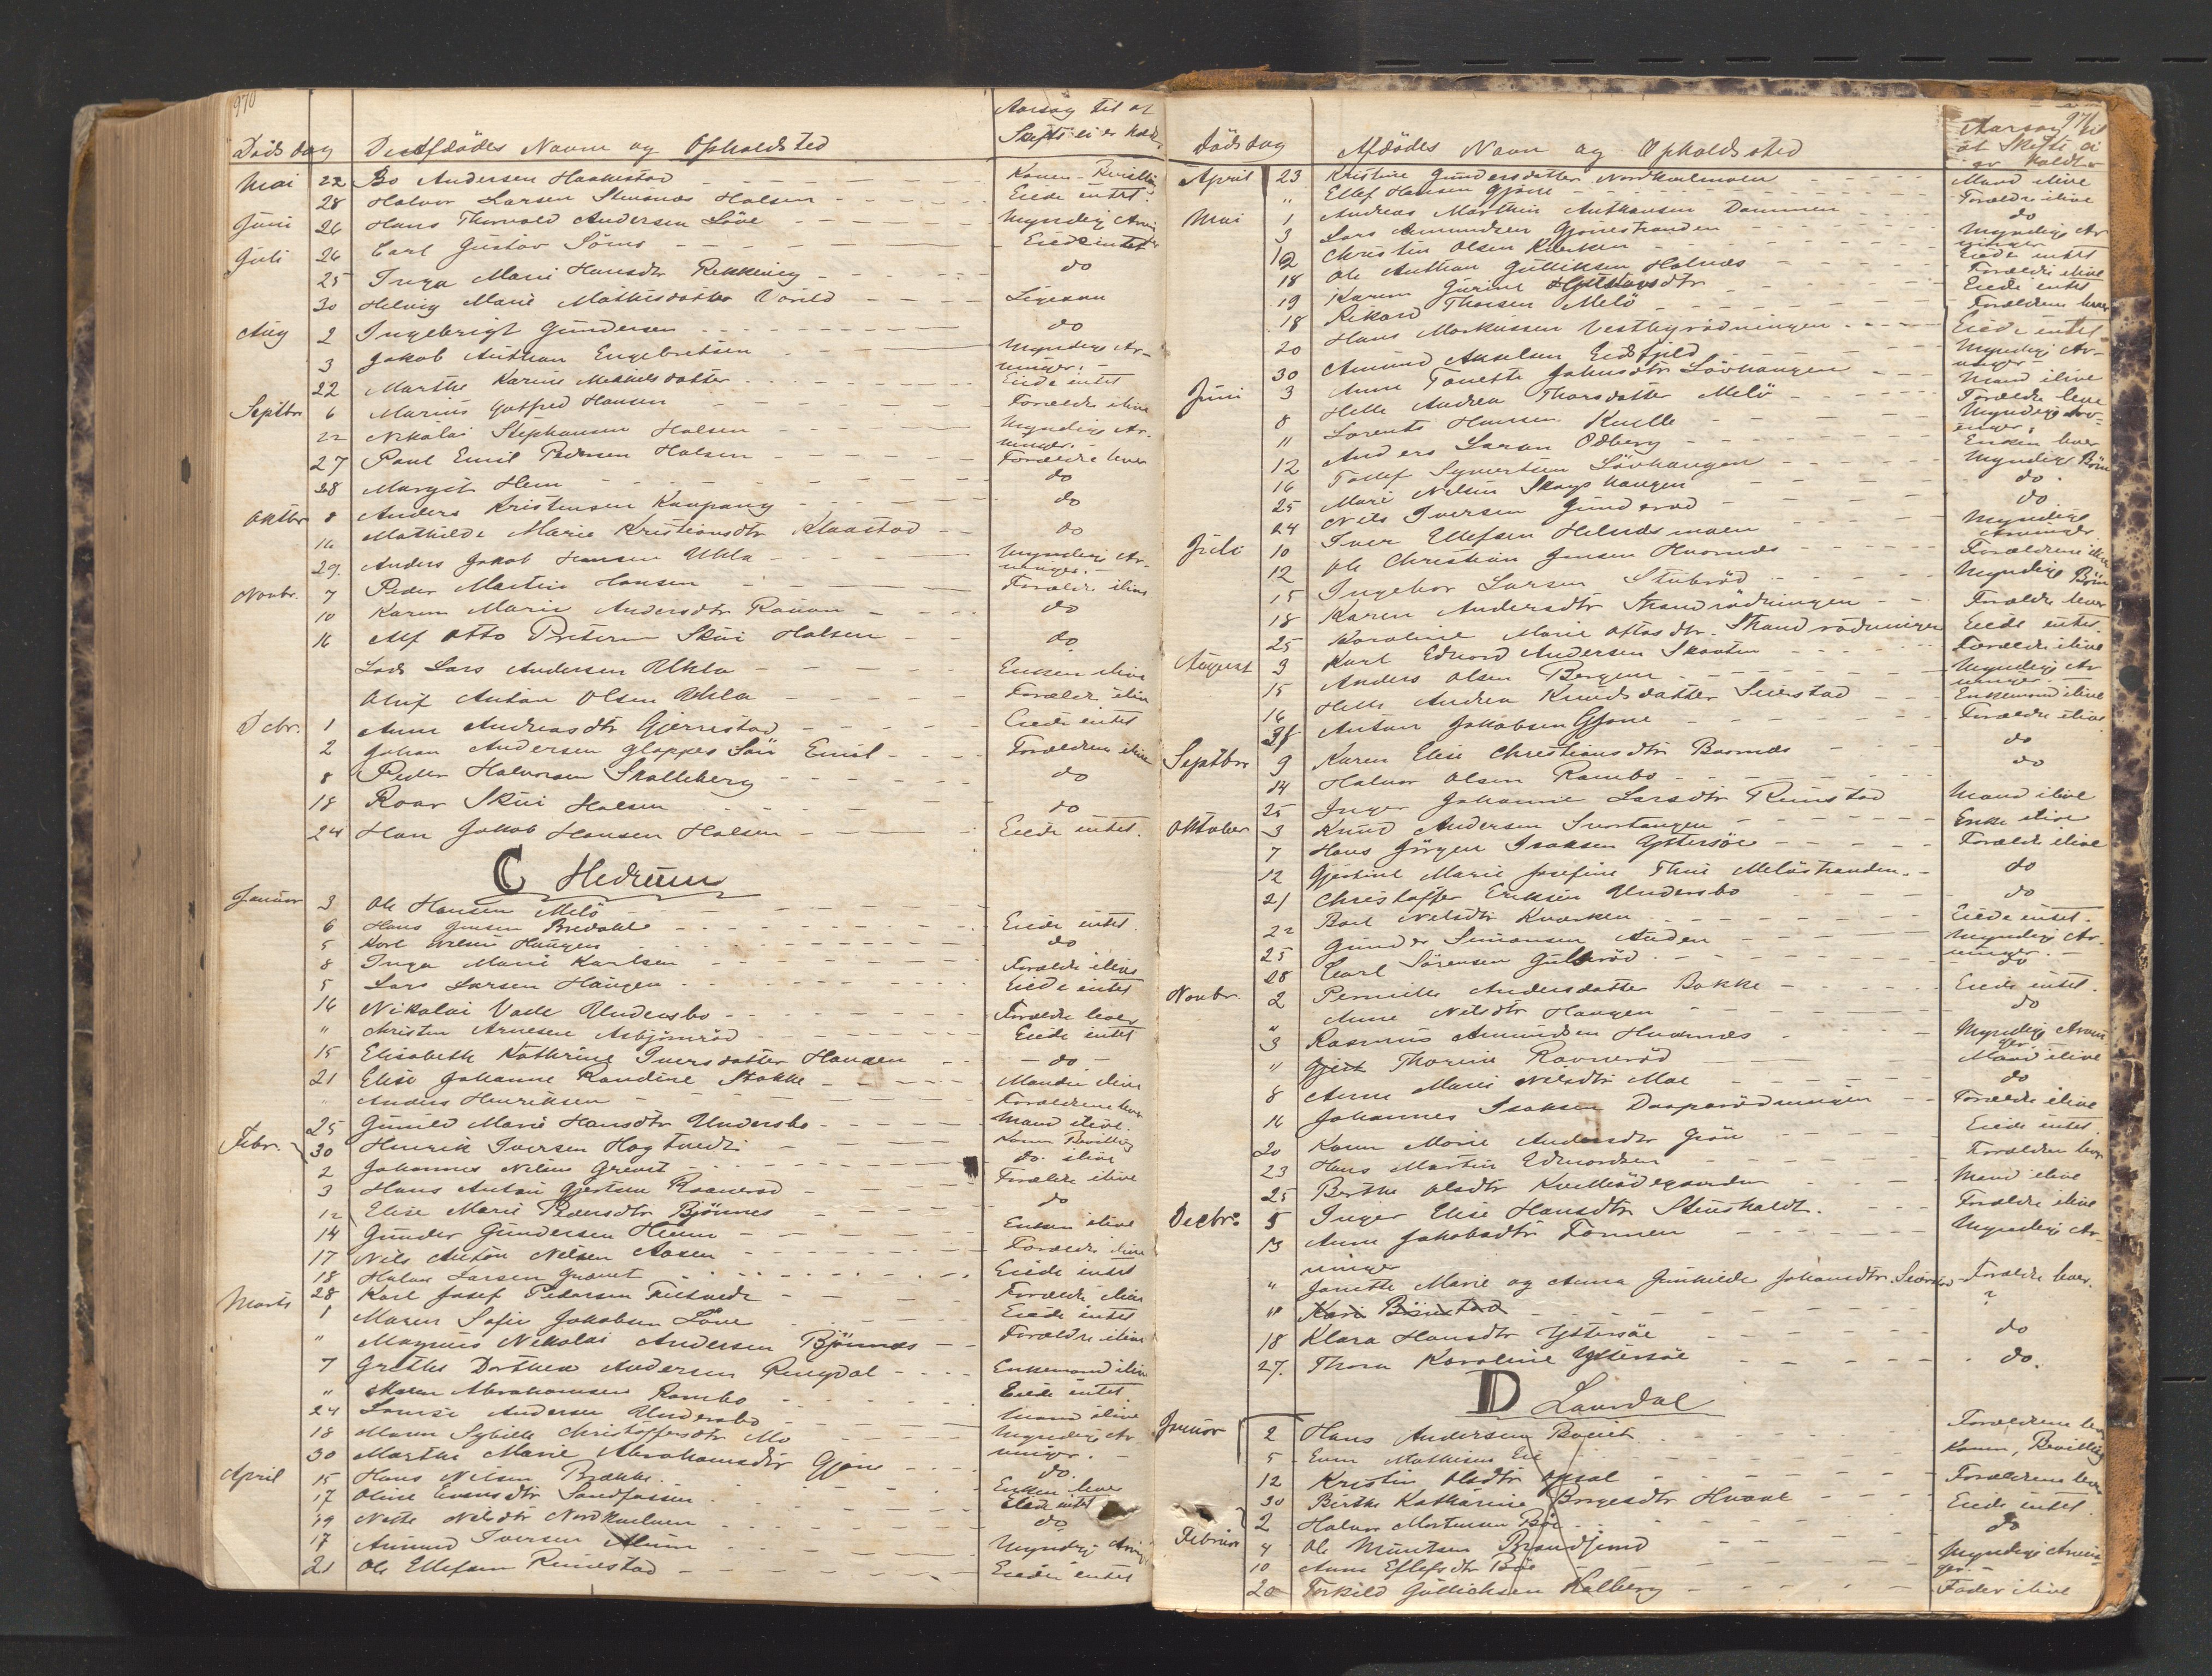 970
Dödsdag Den Afdödes Navn og Opholdsted Aarsag til at Skifte ei er holdt
Mai 22 Bo Andersen Haakestad Konen - Bevilling
28 Halvor Larsen Stensnæs Halsen Eiede intet
Juni 26 Hans Thorvald Andersen Löve Myndige Arvinger
Juli 26 Carl Gustav Söms Eiede intet
25 Inga Marie Hansdtr Rekkevig do
30 Helvig Marie Mathisdatter Ligesaa
Aug 2 Ingebrigt Gundersen do
3 Jakob Anthon Engebretsen Myndige Arvinger.-
22 Marthe Karine Mikkelsdatter Eiede intet
Septbr 6 Marius Gotfred Hansen Forældre ilive
22 Nikolai Stephansen Halsen Myndige Arvinger.-
27 Paul Emil Pedersen Halsen Forældre lever
28 Margit Hem do
Oktbr 8 Anders Kristensen Kaupang do
16 Mathilde Marie Kristiansdtr Klaastad do
29. Anders Jakob Hansen Ukla Myndige Arvinger.-
Novbr. 7 Peder Martin Hansen Forældre ilive
10 Karen Marie Andersdtr Rauan do
16 Alf Otto Petersen Skui Halsen do
Lods Lars Andersen Ukla Enken ilive
Oluf Anton Olsen Ukla Forældre ilive
Dcbr. 1 Anne Andreasdtr Gjerrestad Eiede intet
2 Johan Andersen Gloppes Sön Emil Forældrene ilive
8 Peder Halvorsen Skalleberg do
18 Roar Skui Halsen do
24 Han Jakob Hansen Halsen Eiede intet.
C Hedrum
Januar 3 Ole Hansen Melö
6 Hans Jensen Bredahl Eiede intet.
5 Karl Nilsen Haugen do
8 Inga Marie Karlsen Forældre ilive
5 Lars Larsen Haugen Eiede intet
16 Nikolai Valle Undersbo Forældre lever
" Christen Arnesen Asbjörnröd Eiede intet
15 Elisabeth Kathrine Iversdatter Haugen - do -
21 Elise Johanne Randine Stokke Manden ilive
" Anders Henriksen Forældrene lever
25 Gunild Marie Hansdtr Undersbo Mand ilive.
Febr. 30 Henrik Iversen Hogtvedt Konen Bevilling
2 Johannes Nilsen Grevet do. ilive
3 Hans Anton Gjertsen Ravnerød Forældre ilive
12 Elise Marie Pedersdtr Bjönnes do
14 Gunder Gundersen Hem Enken ilive
17 Nils Anton Nilsen Aasen Forældre ilive
18 Halvor Larsen Eiede intet
28 Karl Josef Pedersen Forældre ilive
Marts 1 Maren Sofie Jakobsen Löve Eiede intet
" Magnus Nikolai Andersen Bjönnes Forældre ilive
7 Grethe Dorthea Andersen Ringdal Enkemand ilive
" Abrahamsen Rambo Eiede intet.
24 Lovise Andersen Undersbo Mand ilive
18 Maren Sybille Christoffersdtr Mo Myndige Arvinger.-
30 Marthe Marie Abrahamsdtr Gjöne do.
April 15 Hans Nilsen Brække. Enken lever
17 Oline Evensdtr Sandfossen Eiede intet
19 Nilsdtr Nordkvelven do
17 Amund Iversen Alum Myndige Arving
21 Ole Ellefsen Rimestad Eiede intet
971
Dödsdag Afdödes Navn og Opholdssted Aarsag til at Skifte ei er holdt
April 23 Kristine Gundersdatter Nordkvelmoen Mand ilive
" Ellef Hansen Gjöne Forældre ilive
Mai 1 Andreas Marthin Anthonsen Dammen do
3 Lars Amundsen Gjonestranden Myndige Arvinger
12 Christen Olsen Kværken Eiede intet
18 Ole Anthon Gulliksen Holnæs Forældre ilive
19 Karen Gurine Gustavsdtr Eiede intet
18 Rikard Thorsen Melö Forældrene lever
20 Hans Markussen Vestbyrödningen Eiede intet
30 Amund Askelsen Eidsfjeld Myndige Arvinger-
Juni 3 Anne Tonette Johnsdtr Lövhaugen Mand ilive
8 Helle Andrea Thorsdatter Melö Forældre leve
11 Lorents Hansen Kvelle Myndige Arvinger.
12 Anders Larsen Odberg Enken lever
16 Tollef Syvertsen Lövhaugen Myndige Börn
25 Mari Nilsen Skogshaugen do.
24 Nils Iversen Gunderød do
Juli 10 Iver Ellefsen Holnæsmoen Myndige Arvinger
12 Ole Christian Jensen Hvarnæs Forældrene ilive
15 Ingebor Larsen Stuberød Myndige Börn
18 Karen Andersdtr Strandrödningen Forældre lever
25 Karoline Marie Ottosdtr. Strandrödningen Eiede intet
August 9 Karl Edvard Andersen Skauten Forældre ilive
15 Anders Olsen Bergene Myndige Arvinger.-
16 Helle Andrea Knudsdatter Sverstad Enkemand ilive
28 Anton Jakobsen Gjöne Forældre ilive
Septbr 9 Karen Elise Christiansdtr Bornæs do
14 Halvor Olsen Rambo do
25 Inger Johanne Larsdtr Rimstad Mand ilive
Oktober 3 Knud Andersen Enke ilive
7 Hans Jörgen Isaksen Yttersöe Forældre ilive
12 Gjertine Marie Josefine Thue Melöstranden do
21 Christoffer Eriksen Undersbo do
22 Boel Nilsdtr Kværken Eiede intet.
25 Gunder Simonsen Auden Myndige Arvinger.-
28 Carl Sörensen Gulliröd do
Novbr. 2 Pernille Andersdatter Bakke Eiede intet.
" Anne Nilsdtr Haugen do
3 Rasmus Amundsen Hvarnæs Myndige Arvinger.
" Gjert Thorine Ravnerød Mand ilive
8 Anne Marie Nilsdtr Moe do
16 Johannes Isaksen Forældre ilive
20 Karen Marie Andersdtr Eiede intet.
23 Hans Martin Edvardsen Forældrene lever
25 Berthe Olsdtr Mand ilive
Decbr. 5 Inger Elise Hansdtr Stensholdt. Forældre ilive
13 Anne Jakobsdtr Tonnen Myndige Arvinger
" Janette Marie og Anna Gunhilde Johansdtr. Forældre lever.
" Kari Björnstad ?
18 Klara Hansdtr Yttersöe do
27. Thora Karoline Yttersöe do.
D Laurdal
Januar 2 Hans Andersen Forældrene lever
5 Even Mathisen Eie Konen, Bevilling
12 Kristin Olsdtr Opsal Forældrene lever
30 Birthe Kathárine Borgesdtr Hvaal Eiede intet.
Februar 2 Halvor Mortensen Böe do
4 Ole Brandsrud Myndige Arvinger.-
10 Anne Ellefsdtr Böe
20 Torkild Gullichsen Kalberg Fader ilive